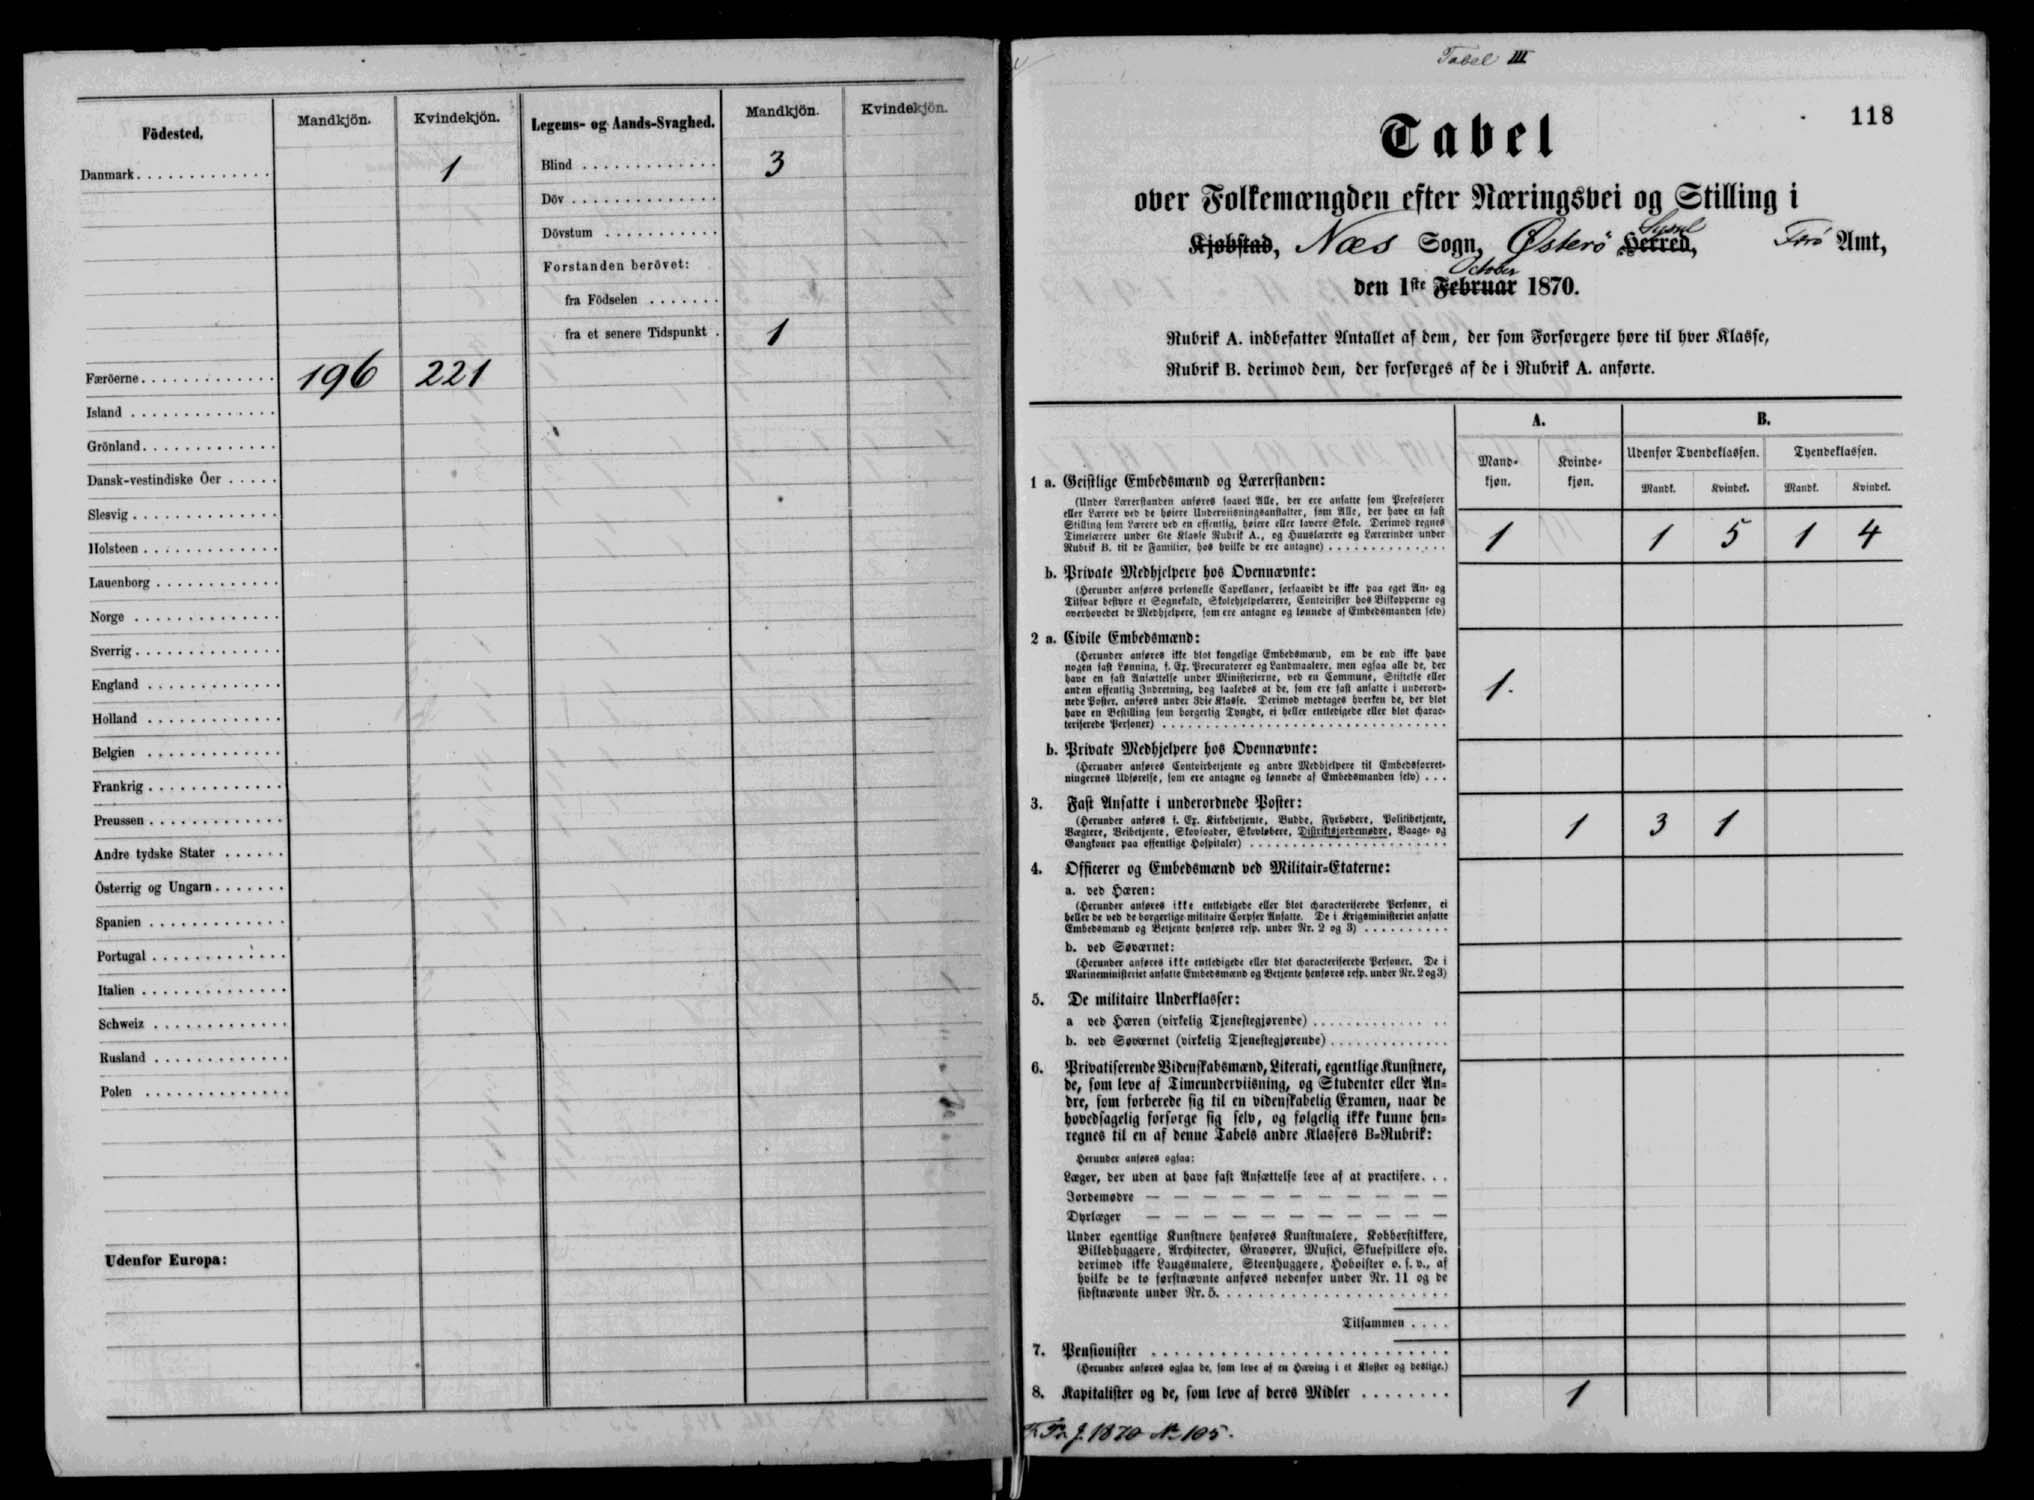 Födested. Mandkjön. Kvindekjön.
Danmark 1
Færöerne 196 221
Island
Grönland
Dansk-vestindiske Öer
Slesvig
Holsteen
Lauenborg
Norge
Sverrig
England
Holland
Belgien
Frankrig
Preussen
Andre tydske Stater
Österrig og Ungarn
Spanien
Portugal
Italien
Schweiz
Rusland
Polen
Udenfor Europa:
Legems- og Aands-Svaghed. Mandkjön. Kvindekjön.
Blind 3
Döv
Dövstum
Forstanden berövet:
fra Födselen
fra et senere Tidspunkt 1
Tabel III
118
Tabel
over Folkemængden efter Næringsvei og Stilling i
Kjøbstad, Næs Sogn, Østerö Herred, Syssel Færö Amt,
den 1ste Februar October 1870.
Rubrik A. indbefatter Antallet af dem, der som Forsørgere høre til hver Klasse,
Rubrik B. derimod dem, der forsørges af de i Rubrik A. anførte.
A. B.
Mandkjøn. Kvindekjøn. Udenfor Tyendeklassen. Tyendeklassen.
Mandk. Kvindek. Mandk. Kvindek.
1 a. Geistlige Embedsmænd og Lærerstanden:
(Under Lærerstanden anføres saavel Alle, der ere ansatte som Professorer
eller Lærere ved de høiere Underviisningsanstalter, som Alle, der have en fast
Stilling som Lærere ved en offentlig, høiere eller lavere Skole. Derimod regnes
Timelærere under 6te Klasse Rubrik A., og Huuslærere og Lærerinder under
Rubrik B. til de Familier, hos hvilke de ere antagne) 1 1 5 1 4
b. Private Medhjelpere hos Ovennævnte:
(Herunder anføres personelle Capellaner, forsaavidt de ikke paa eget An- og
Tilsvar bestyre et Sognekald, Skolehjelpelærere, Contoirister hos Biskopperne og
overhovedet de Medhjelpere, som ere antagne og lønnede af Embedsmanden selv)
2 a. Civile Embedsmænd:
(Herunder anføres ikke blot kongelige Embedsmænd, om de end ikke have
nogen fast Lønning, f. Ex. Procuratorer og Landmaalere, men ogsaa alle de, der
have en fast Ansættelse under Ministerierne, ved en Commune, Stiftelse eller
anden offentlig Indretning, dog saaledes at de, som ere fast ansatte i underord-
nede Poster, anføres under 3die Klasse. Derimod medtages hverken de, der blot
have en Bestilling som borgerlig Tyngde, ei heller entledigede eller blot charac-
teriserede Personer) 1.
b. Private Medhjelpere hos Ovennævnte:
(Herunder anføres Contoirbetjente og andre Medhjelpere til Embedsforret-
ningernes Udførelse, som ere antagne og lønnede af Embedsmanden selv)
3. Fast Ansatte i underordnede Poster:
(Herunder anføres f. Ex. Kirkebetjente, Budde, Fyrbødere, Politibetjente,
Vægtere, Veibetjente, Skovfogder, Skovløbere, Distriktsjordemødre, Vaage- og
Gangkoner paa offentlige Hospitaler) 1 3 1
4. Officerer og Embedsmænd ved Militair-Etaterne:
a. ved Hæren:
(Herunder anføres ikke entledigede eller blot characteriserede Personer, ei
heller de ved de borgerlige militaire Corpser Ansatte. De i Krigsministeriet ansatte
Embedsmænd og Betjente henføres resp. under Nr. 2 og 3)
b. ved Søværnet:
(Herunder anføres ikke entledigede eller blot characteriserede Personer. De i
Marineministeriet ansatte Embedsmænd og Betjente henføres resp. under Nr. 2 og 3)
5. De militaire Underklasser:
a ved Hæren (virkelig Tjenestegjørende)
b. ved Søværnet (virkelig Tjenestegjørende)
6. Privatiserende Videnskabsmænd, Literati, egentlige Kunstnere,
de, som leve af Timeunderviisning, og Studenter eller An-
dre, som forberede sig til en videnskabelig Examen, naar de
hovedsagelig forsørge sig selv, og følgelig ikke kunne hen-
regnes til en af denne Tabels andre Klassers B-Rubrik:
Herunder anføres ogsaa:
Læger, der uden at have fast Ansættelse leve af at practisere
Jordemødre — — — — — — — — — — —
Dyrlæger — — — — — — — — — — —
Under egentlige Kunstnere henføres Kunstmalere, Kobberstikkere,
Billedhuggere, Architecter, Gravører, Musici, Skuespillere osv.
derimod ikke Laugsmalere, Steenhuggere, Hoboister o. s. v., af
hvilke de to førstnævnte anføres nedenfor under Nr. 11 og de
sidstnævnte under Nr. 5.
Tilsammen
7. Pensionister
(Herunder anføres ogsaa de, som leve af en Hæving i et Kloster og deslige.)
8. Kapitalister og de, som leve af deres Midler 1
J. 1870 No 105.